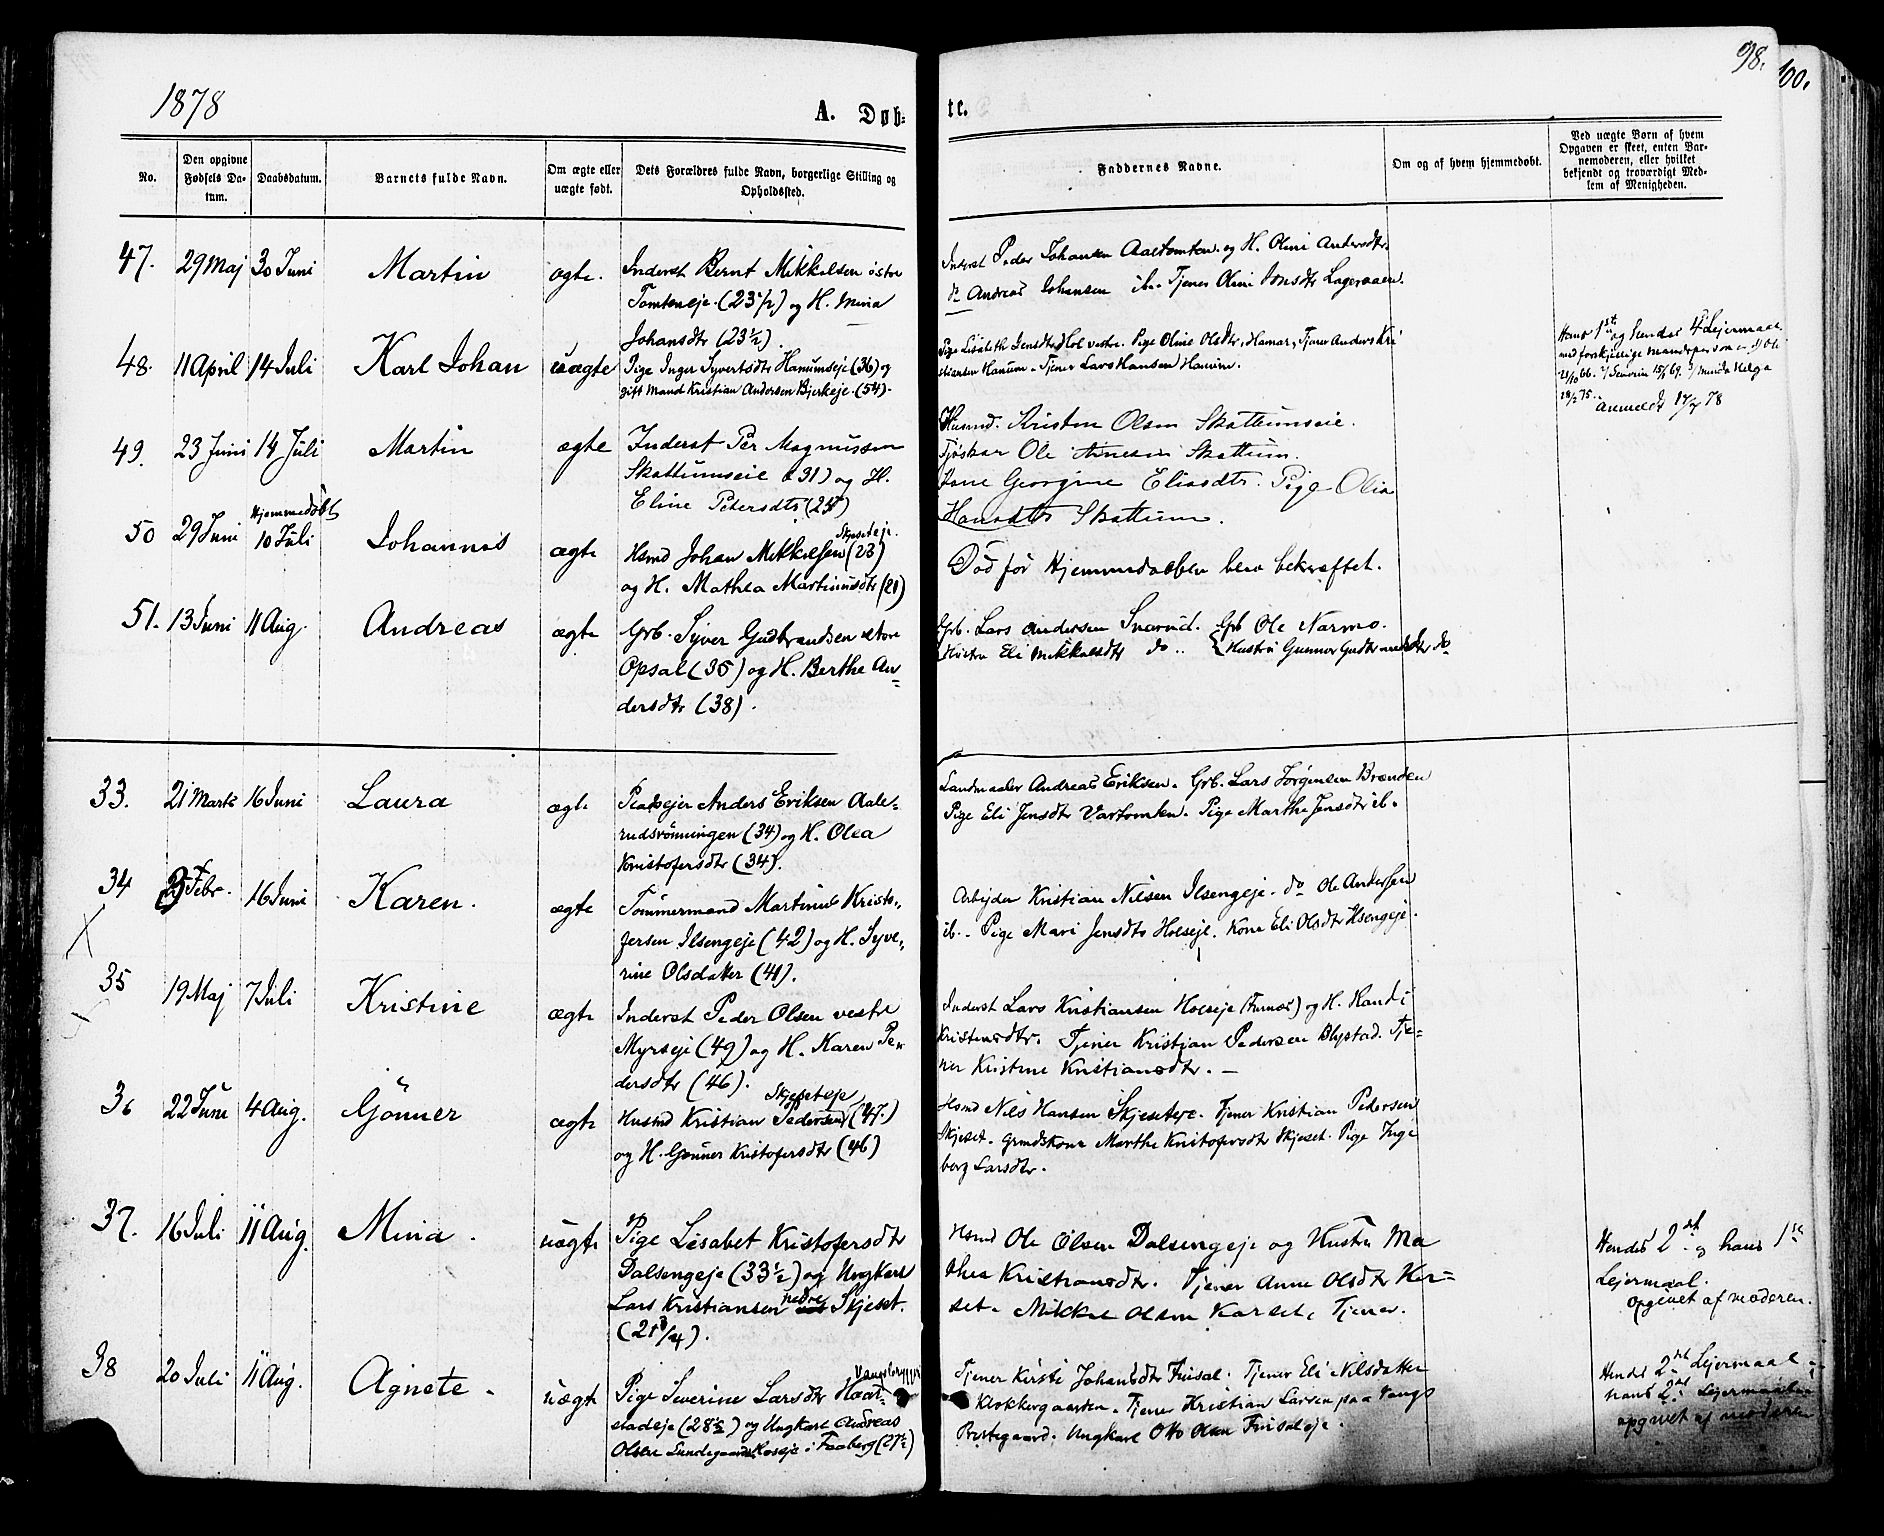 98.
100.
1878
A. Døb=
te.
No.
Den opgivne Fødsels Datum.
Daabsdatum.
Barnets fulde Navn.
Om ægte eller uægte født.
Dets Forældres fulde Navn, borgerlige Stilling og Opholdssted.
Faddernes Navne.
Om og af hvem hjemmedøbt.
Ved uægte Børn af hvem Opgaven er skeet, enten Barnemoderen, eller hvilket bekjendt og troværdigt Medlem af Menigheden.
47. 29 Maj 30 Juni Martin ægte.
Inderst Bernt Mikkelsen østre
Tomteneje. (23 1/2) og H. Mina
Johansdtr (23 1/2).
Inderst Peder Johansen Aaltomten. og H. Olini Andersdtr.
do Andreas Johansen ib. Tjener Olini Jonsdtr Lageraaen.
48. 11 April 14 Juli Karl Johan uægte
Pige Inger Syvertsdtr Hanumseje (36) og
gift Mand Kristian Andersen Bjerkeje. (54).
Pige Lisabeth Jensdtr Hol vestre. Pige Oline Olsdtr, Hamar, Tjener Anders Kri
stiansen Hanum. Tjener Lars Hansen Hanum.
Hans 1ste og hendes 4de Lejermaal
med forskjellige Mandspersoner
Anmeldt 14/7 78
49. 23 Juni 14 Juli Martin ægte
Inderst Per Magnussen
Skattumseie (31) og H.
Eline Petersdtr (25)
Husmd. Kristen Olsen Skattumseie.
Fjøskar Ole Arnesen Skattum.
Kone Georgine Eliasdtr. Pige Olia
Hansdtr Skattum.
50 29 Juni Hjemmedøbt 10 Juli Johannes ægte
Skjeseteje.
Hsmd Johan Mikkelsen (23)
og H. Mathea Martinusdtr (21)
Død før Hjemmedaaben blev bekræftet.
51. 13 Juni 11 Aug. Andreas ægte
Grb. Syver Gudbrandsen store
Opsal (35) og H. Berthe An=
dersdtr (38).
Grb. Lars Andersen Snarud. Grb Ole Narmo.
Hustru Eli Mikkelsdtr do.. Hustru Gunnor Gudbrandsdtr do
33. 21 Marts 16 Juni Laura ægte
Pladsejer Anders Eriksen Aale=
rudsrønningen (34) og H. Olea
Kristofersdtr (34).
Landmaaler Andreas Eriksen. Grb. Lars Jørgensen Brænden
Pige Eli Jensdtr Vartomten. Pige Marthe Jensdtr ib.
34 3 Febr. 16 Juni Karen. ægte
Tømmermand Martinus Kristo=
fersen Ilsengeje (42) og H. Syve=
rine Olsdatter (41).
Arbejder Kristian Nilsen Ilsengeje. do Ole Andersen
ib. Pige Mari Jensdtr Holseje. Kone Eli Olsdtr Ilsengeje.
35 19 Maj 7 Juli Kristine ægte
Inderst Peder Olsen vestre
Myrseje (49) og H. Karen Pe=
dersdtr (46).
Inderst Lars Kristiansen Holseje (Furnes) og H. Randi
Kristensdtr. Tjener Kristian Pedersen Blystad. Tje=
ner Kristine Kristiansdtr. —
36 22 Juni 4 Aug. Gønner ægte
Skjeseteje
Husmd Kristian Pedersen (47.)
og H. Gønner Kristofersdtr (46)
Hsmd Nils Hansen Skjeseteje. Tjener Kristian Pedersen
Skjeset. Grmdskone Marthe Kristofersdtr Skjeset. Pige Inge
borg Larsdtr.
37. 16 Juli 11 Aug. Mina. uægte
Pige Lisabet Kristofersdtr
Dalsengeje (33 1/2) og Ungkarl
Lars Kristiansen nedre Skjeset.
(21 3/4).
Hsmd Ole Olsen Dalsengeje og Hustru Ma
thea Kristiansdtr. Tjener Anne Olsdtr Kor=
set. Mikkel Olsen Karset, Tjener.
Hendes 2det og hans 1ste
Lejermaal.
opgivet af moderen.
38 20 Juli 11 Aug. Agnete. uægte
Pige Severine Larsdtr Haar=
stadeje (28 1/2) og Ungkarl Andreas
Olsen Lundegaards Moseje i Faaberg (27 1/2)
Tjener Kirsti Johansdtr Finsal. Tjener Eli Nilsdatter
Klokkergaarden. Tjener Kristian Larsen paa Vangs
Prestegaard. Ungkarl Otto Olsen Finsaleje.
Hendes 2det Lejermaal
hans 2det Lejermaal
opgivet af moderen